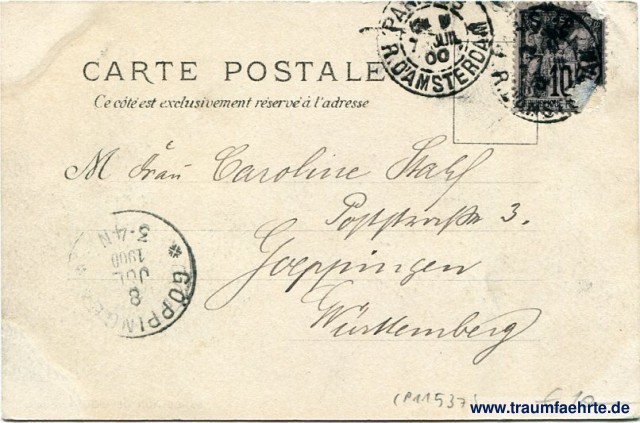 PARIS
JUIL
00
R. D'AMSTERDAM
POSTES
10
CARTE POSTALE
Ce côté est exclusivement réservé à l'adresse
M Frau Caroline Stahl
Poststraße 3.
Goeppingen
Württemberg
GÖPPINGEN
8
JUL
1900
3-4 N
(P11537)
€ 10
www.traumfaehrte.de